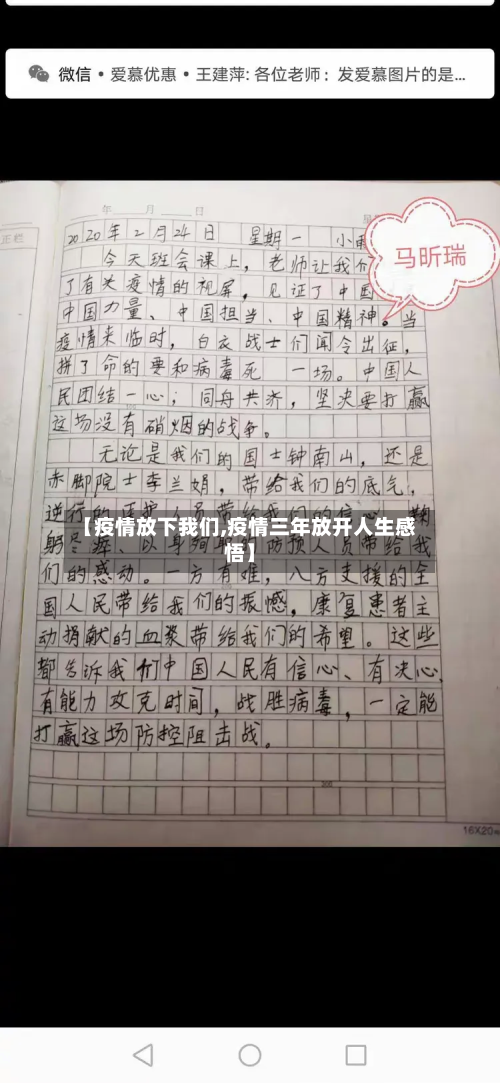 微信 • 爱慕优惠 • 王建萍: 各位老师：发爱慕图片的是...
年 月 日
正栏
2020年2月24日 星期一 小雨
马昕瑞
今天班会课上，老师让我们
了有关疫情的视屏，见证了中国
中国力量、中国担当、中国精神。当
疫情来临时，白衣战士们闻令出征，
拼了命的要和病毒死 一场。中国人
民团结一心；同舟共济，坚决要打赢
这场没有硝烟的战争。
无论是我们的国士钟南山，还是
赤脚院士李兰娟，带给我们的底气，
逆行的医护人员带给我们的信心，鞠
【疫情放下我们,疫情三年放开人生感
悟】
躬尽瘁、以身殉职的防损人员带给我
们的感动。一方有难，八方支援的全
国人民带给我们的振憾，康复患者主
动捐献的血浆带给我们的希望。这些
都告诉我们中国人民有信心、有决心
有能力攻克时间，战胜病毒，一定能
打赢这场防控阻击战。
200
16X20